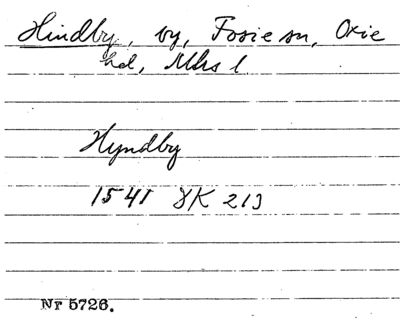 Hindby, by, Fosie sn, Oxie
hd, Mhs l.
Hyndby
1541 SK 213
Nr 5726.